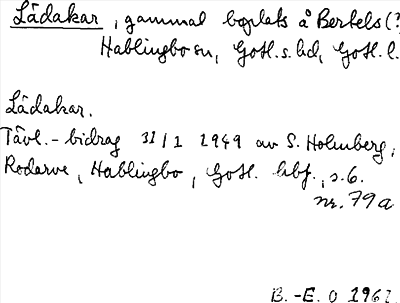 Lådakar, gammal boplats å Bertels (?
Hablingbo sn, Gotl. s. hd, Gotl. l.
Lådakar.
Tävl.-bidrag 31/1 1949 av S. Holmberg,
Rodarve, Hablingbo, Gotl. hbf., s. 6.
nr. 79a
B.-E. O 1961.